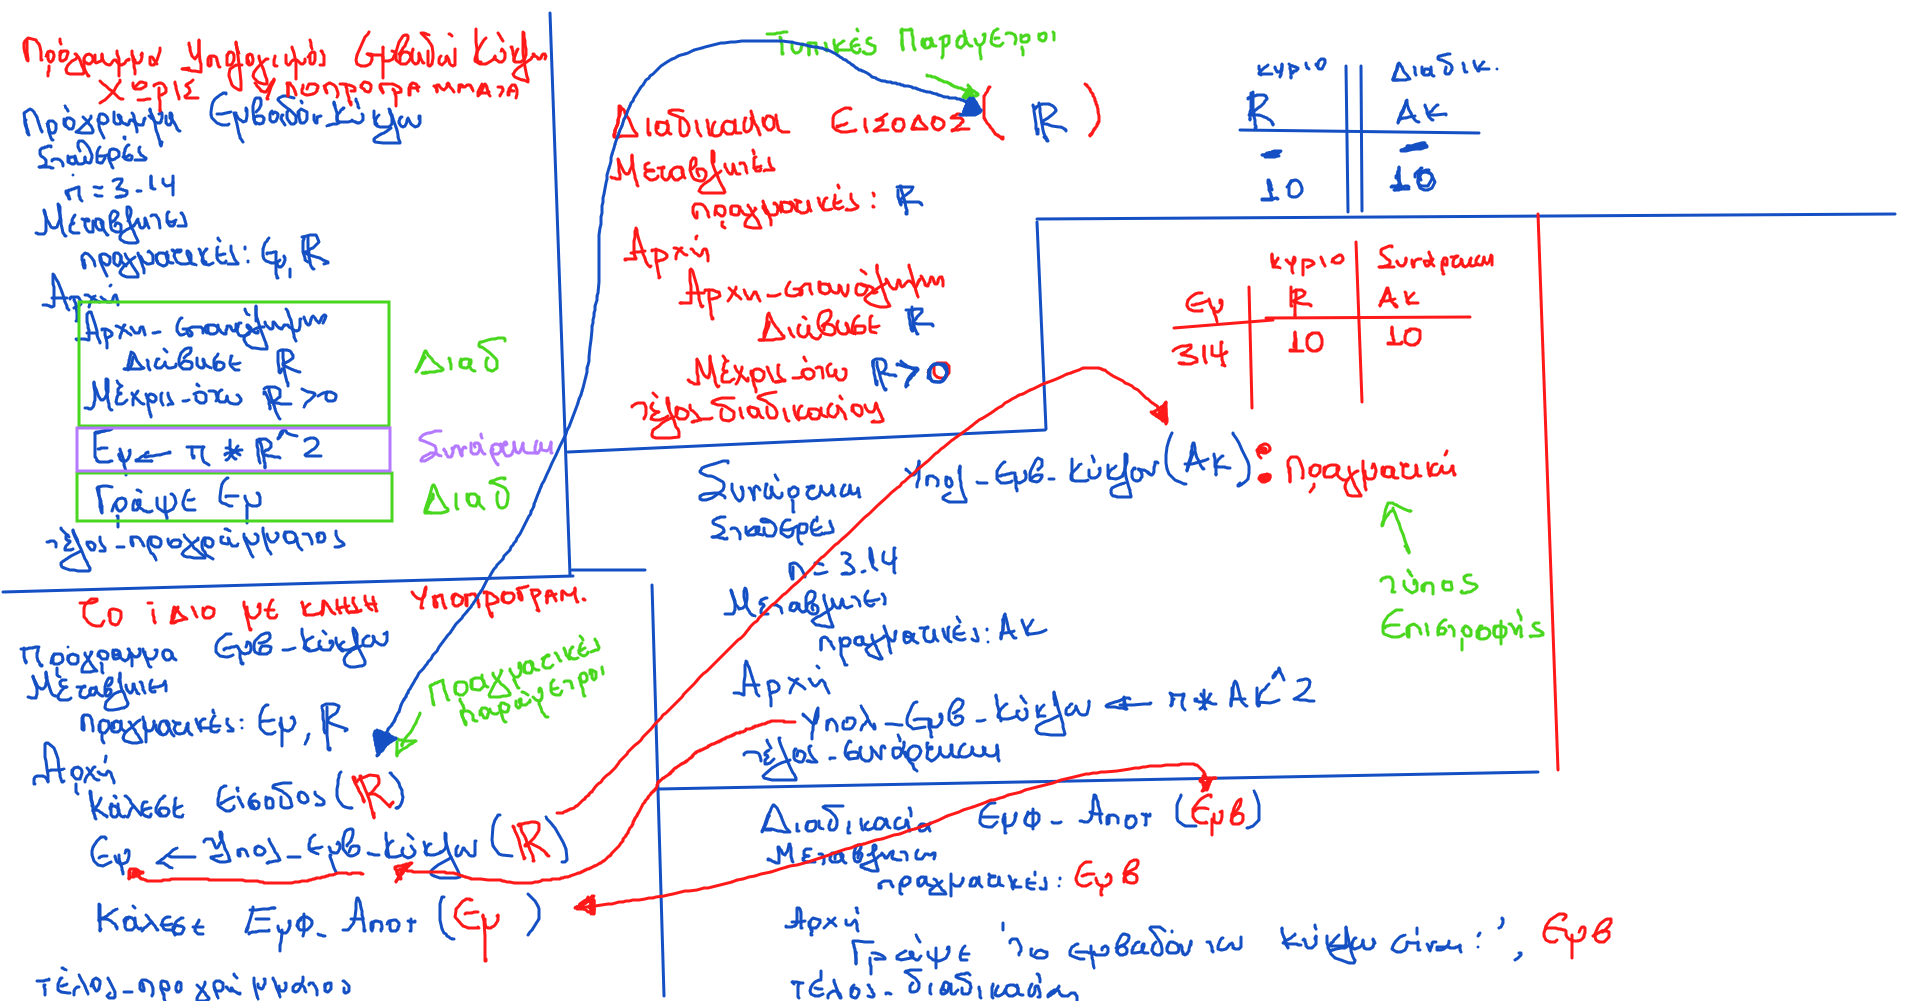 Πρόγραμμα Υπολογισμός Εμβαδού Κύκλου
ΧΩΡΙΣ ΥΠΟΠΡΟΓΡΑΜΜΑΤΑ
Πρόγραμμα Εμβαδόν_Κύκλου
Σταθερές
π = 3.14
Μεταβλητές
πραγματικές: Εμ, R
Αρχή
Αρχή_επανάληψης
Διάβασε R
Μέχρις_ότου R > 0
Διαδ
Εμ ← π * R^2
Συνάρτηση
Γράψε Εμ
Διαδ
τέλος_προγράμματος
Τυπικές Παράμετροι
Διαδικασία ΕΙΣΟΔΟΣ ( R )
Μεταβλητές
πραγματικές: R
Αρχή
Αρχή_επανάληψης
Διάβασε R
Μέχρις_ότου R > 0
τέλος_διαδικασίας
κυριο Διαδικ.
R ΑΚ
- -
10 10
κυριο Συνάρτηση
Εμ R ΑΚ
314 10 10
Συνάρτηση Υπολ_Εμβ_Κύκλου(ΑΚ): Πραγματική
Σταθερές
π = 3.14
Μεταβλητές
πραγματικές: ΑΚ
Αρχή
Υπολ_Εμβ_Κύκλου ← π * ΑΚ^2
τέλος_συνάρτησης
τύπος
Επιστροφής
το ίδιο με κλήση υποπρογραμ.
Πρόγραμμα Εμβ_Κύκλου
Μεταβλητές
πραγματικές: Εμ, R
Πραγματικές
παράμετροι
Αρχή
Κάλεσε Είσοδος(R)
Εμ ← Υπολ_Εμβ_Κύκλου(R)
Κάλεσε Εμφ_Αποτ(Εμ)
τέλος_προγράμματος
Διαδικασία Εμφ_Αποτ (Εμβ)
Μεταβλητές
πραγματικές: Εμβ
Αρχή
Γράψε 'Το εμβαδόν του κύκλου είναι:', Εμβ
τέλος_διαδικασίας